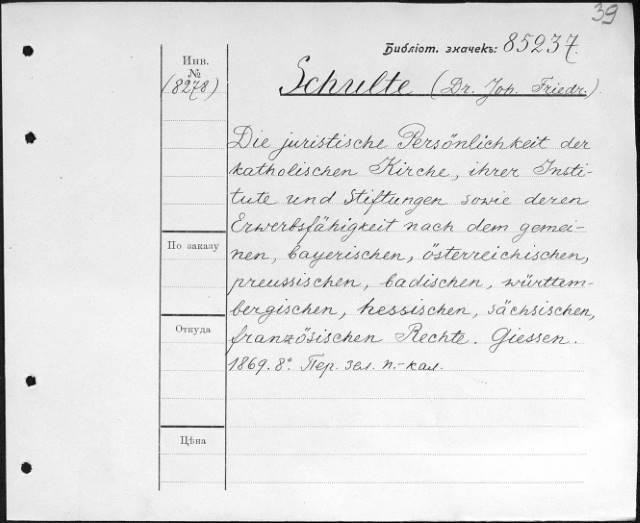 39
Библіот. значекъ: 85237.
Инв.
№
(8278)
Schulte (Dr. Joh. Friedr.)
Die juristische Persönlichkeit der
katholischen Kirche, ihrer Insti-
tute und Stiftungen sowie deren
Erwerbsfähigkeit nach dem gemei-
nen, bayerischen, österreichischen,
preussischen, badischen, württem-
bergischen, hessischen, sächsischen,
französischen Rechte. Giessen.
1869. 8°. Пер. зел. п.-кал.
По заказу
Откуда
Цѣна